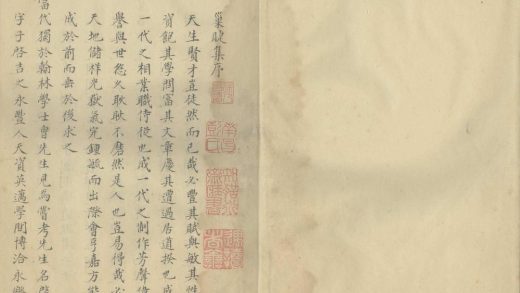 巢睫集序
天生賢才豈徒然而已哉必豐其賦與敏其性
資飽其學問富其文章慶其遭遇居道揆也成
一代之相業職侍從也成一代之制作芳聲偉
譽與世悠久耿耿不磨然是人也豈易得哉必
天地儲祥光嶽氣完鍾毓而出際會亨嘉方能
成於前而垂於後求之
當代獨於翰林學士曾先生見焉嘗考先生名棨
字子啓吉之永豐人天資英邁學問博洽永樂